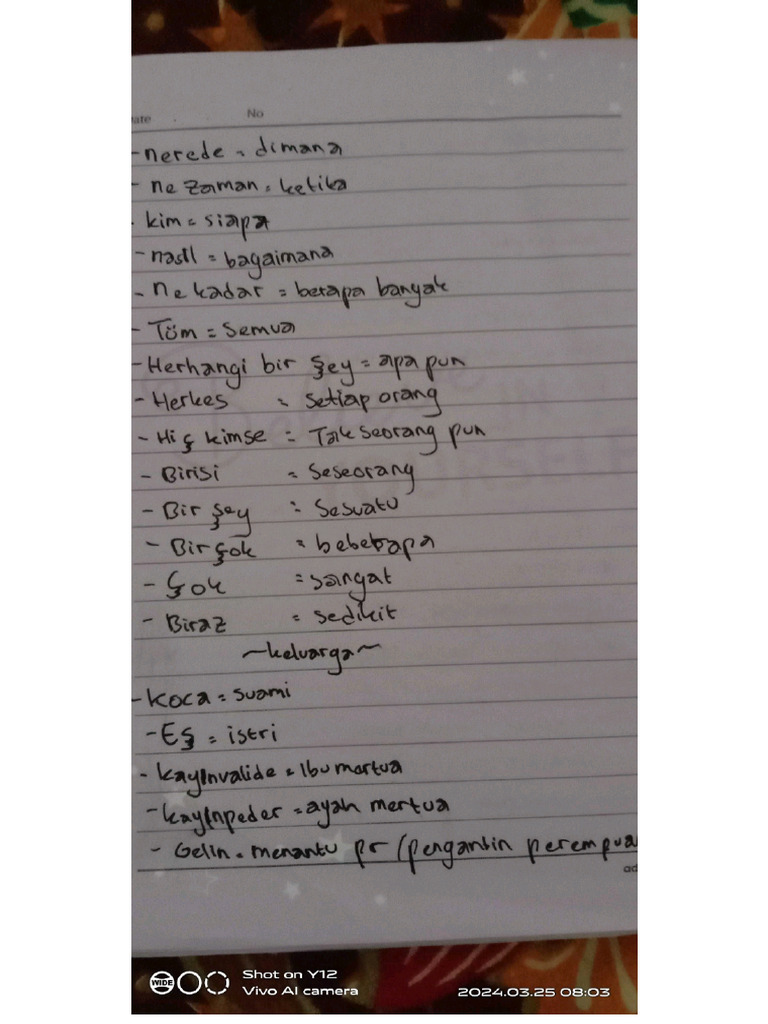 ate . No
- nerede = dimana
- ne zaman = ketika
- kim = siapa
- nasıl = bagaimana
- Ne kadar = berapa banyak
- Tüm = Semua
- Herhangi bir şey = apa pun
- Herkes = setiap orang
- Hiç kimse = Tak seorang pun
- Birisi = Seseorang
- Bir şey = Sesuatu
- Birçok = beberapa
- Çok = sangat
- Biraz = sedikit
~keluarga~
- Koca = suami
- Eş = istri
- kayınvalide = Ibu mertua
- kayınpeder = ayah mertua
- Gelin = menantu pr (pengantin perempua
ad
WIDE
Shot on Y12
Vivo AI camera
2024.03.25 08:03